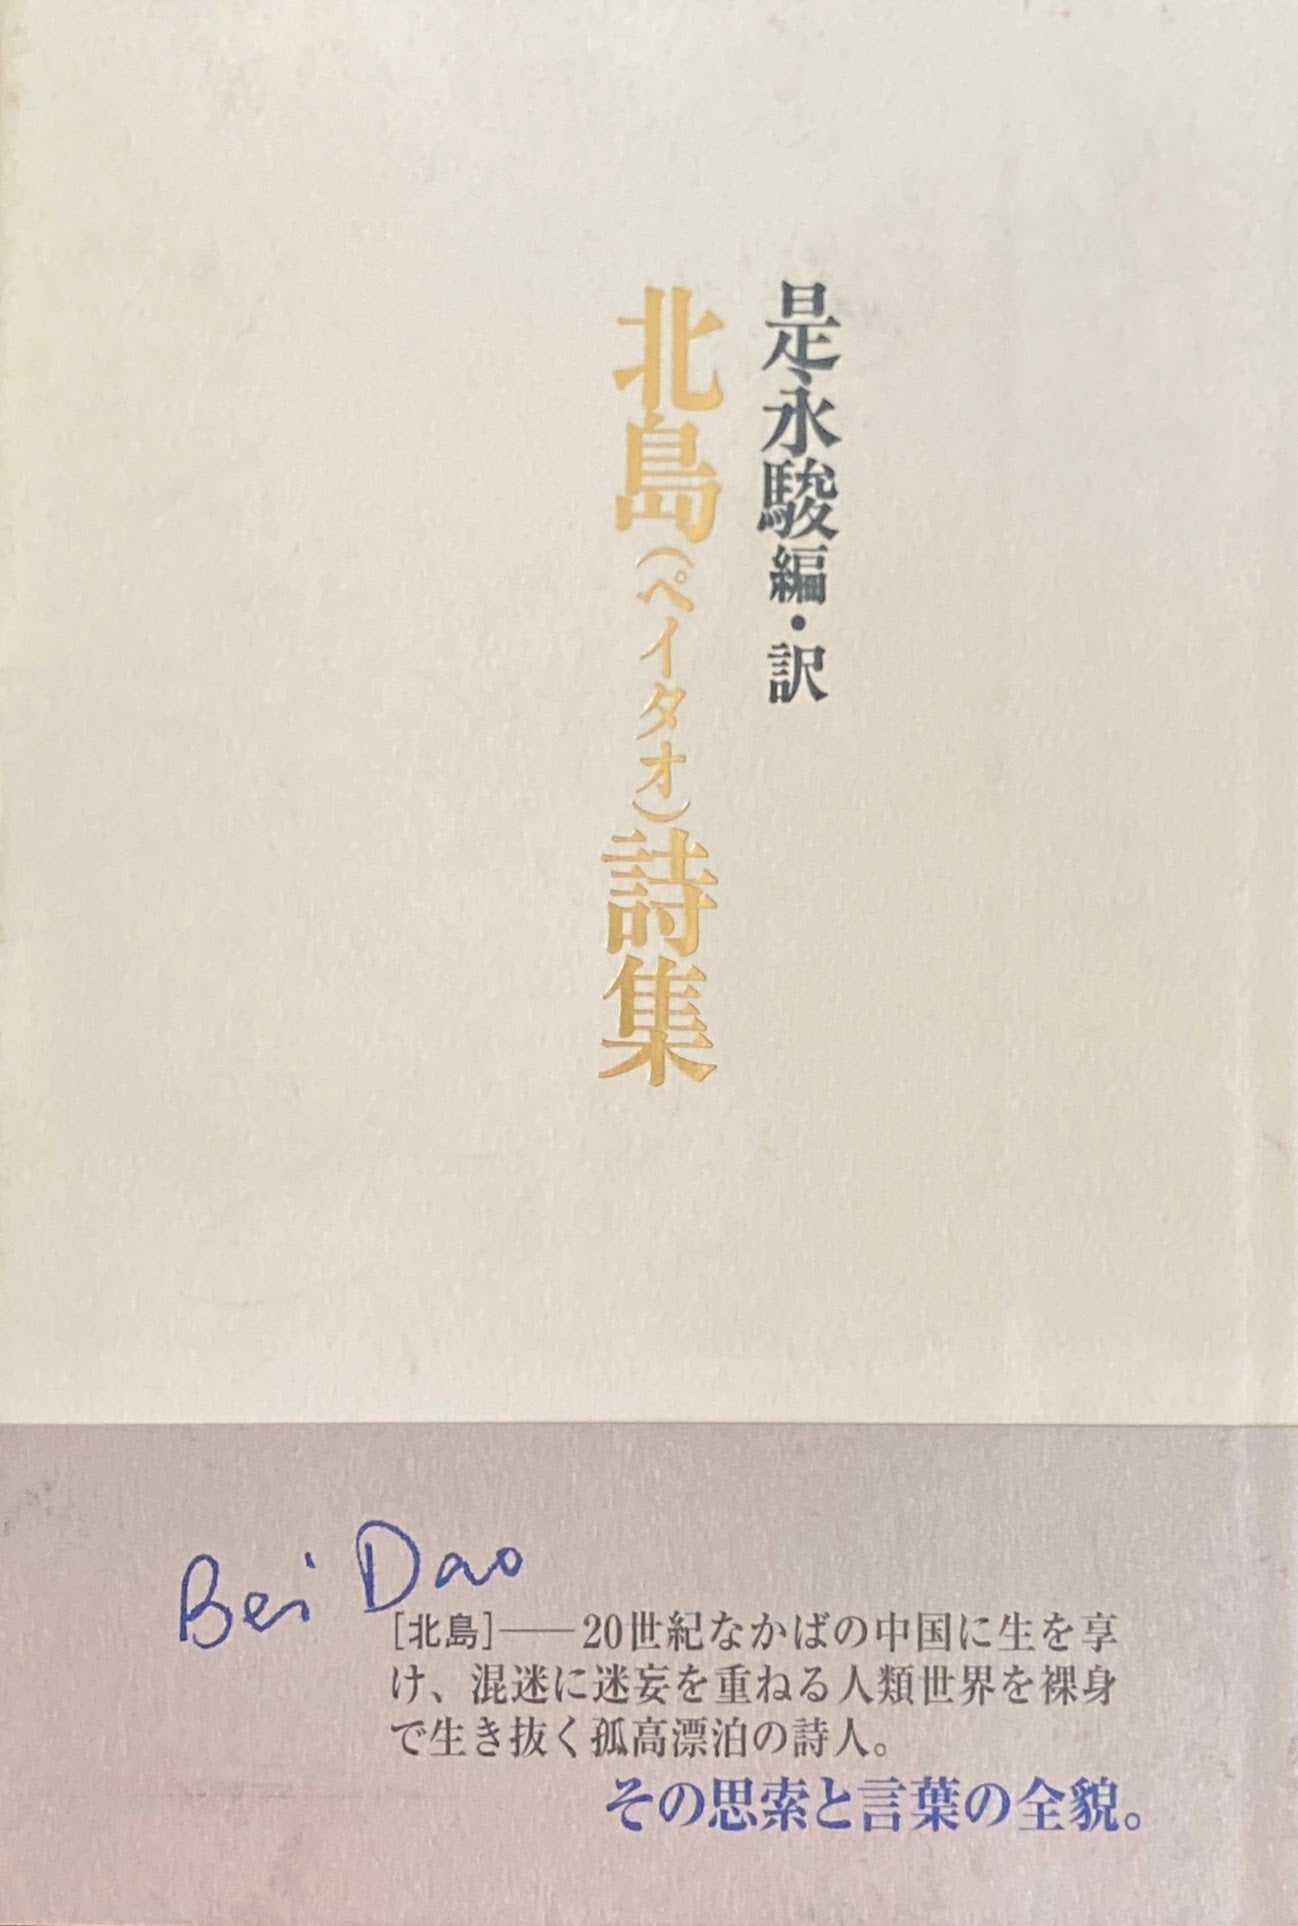 是永駿編・訳
北島(ペイタオ)詩集
Bei Dao
[北島]——20世紀なかばの中国に生を享
け、混迷に迷妄を重ねる人類世界を裸身
で生き抜く孤高漂泊の詩人。
その思索と言葉の全貌。